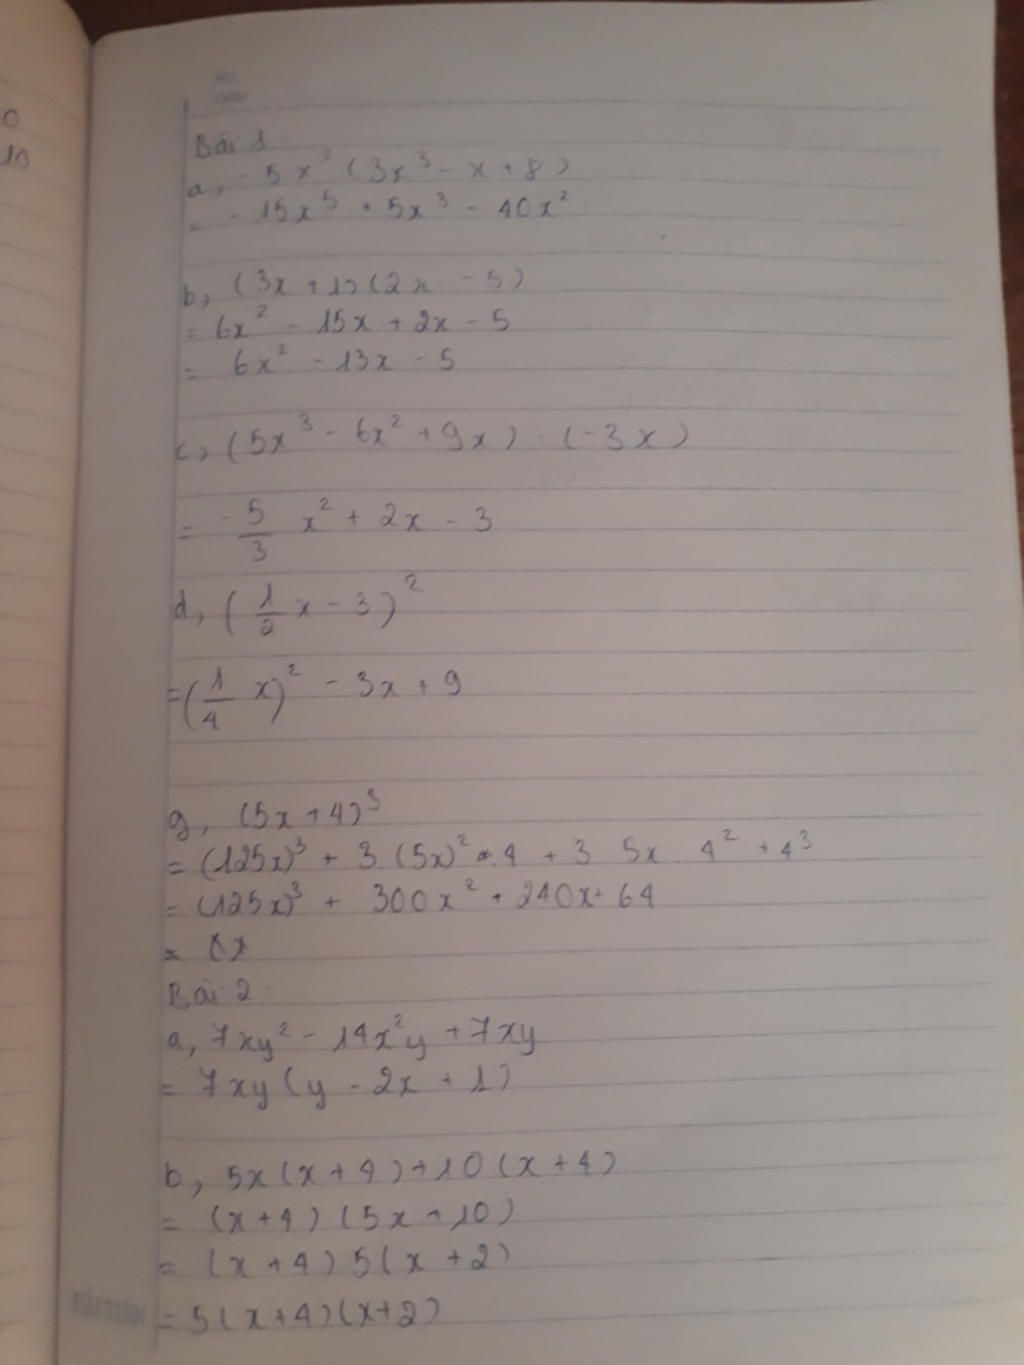 No.
Date
0
10
Bài 1:
a, -5x² (3x³ - x + 8)
= -15x⁵ + 5x³ - 40x²
b, (3x + 1)(2x - 5)
= 6x² - 15x + 2x - 5
= 6x² - 13x - 5
c, (5x³ - 6x² + 9x) : (-3x)
= -5/3 x² + 2x - 3
d, (1/2 x - 3)²
= (1/4 x)² - 3x + 9
g, (5x + 4)³
= (125x)³ + 3. (5x)² . 4 + 3 5x 4² + 4³
= (125x)³ + 300x² + 240x + 64
Bài 2:
a, 7xy² - 14x²y + 7xy
= 7xy (y - 2x + 1)
b, 5x (x + 4) + 10 (x + 4)
= (x + 4) (5x + 10)
= (x + 4) 5 (x + 2)
= 5 (x + 4) (x + 2)
HẢI TIẾN